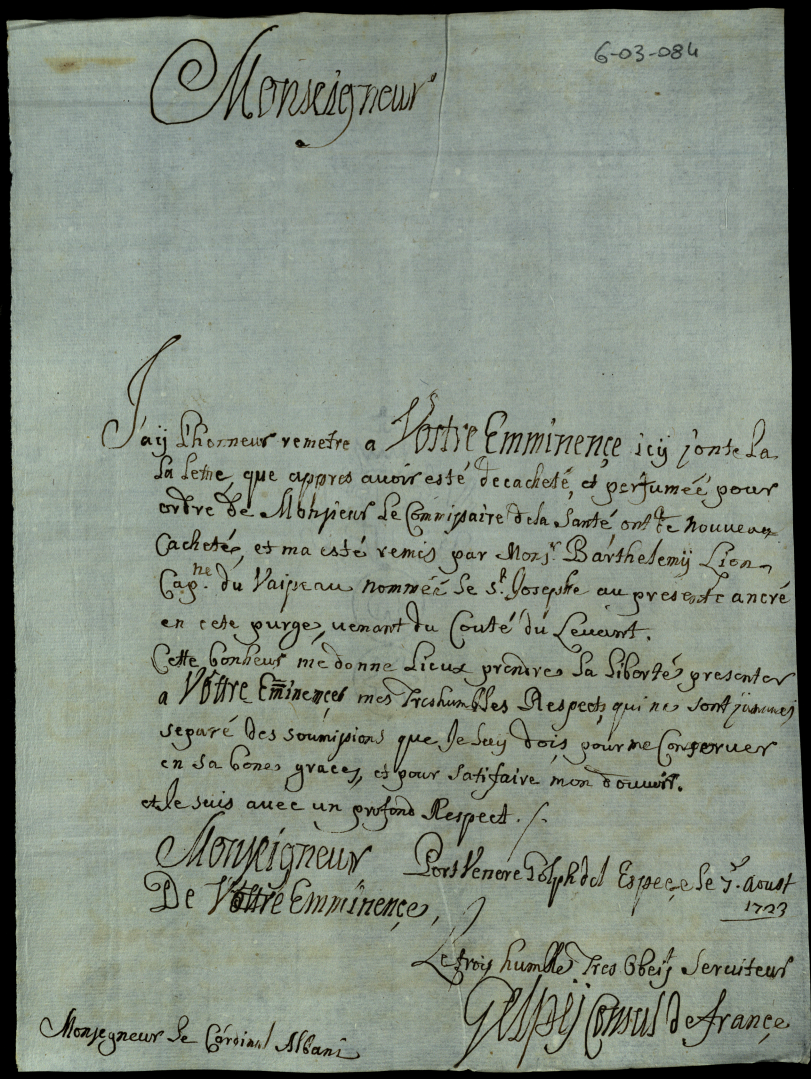 6-03-084
Monseigneur
J'aÿ l'honneur remetre a Vostre Emminençe icÿ jonte La
La letre, que appres avoir esté decacheté, et perfumée pour
ordre de Monsieur Le Commissaire de la Santé ont de nouveau
Cacheté, et ma esté remis par Monsr. Barthelemÿ Lion
Capne. du Vaisseau nommée le st. Josephe au present ancré
en cete purge, venant du Couté du Levant.
Cette bonheur me donne Lieux prendre La liberté presenter
a Vottre Eminençe mes Tres humbles Respects, qui ne sont jammes
separé des soumissions que Je luy dois, pour me Conserver
en sa bone graces, et pour satifaire mon douvoir.
et Je suis avec un profond Respect. /.
Monseigneur
Port Venere Golph del Espeçe le 7. Aoust
1723
De Vottre Emminençe,
Le trois humble Tres Obeis Serviteur
Consul de françe
Monsegneur Le Cardinal Albani